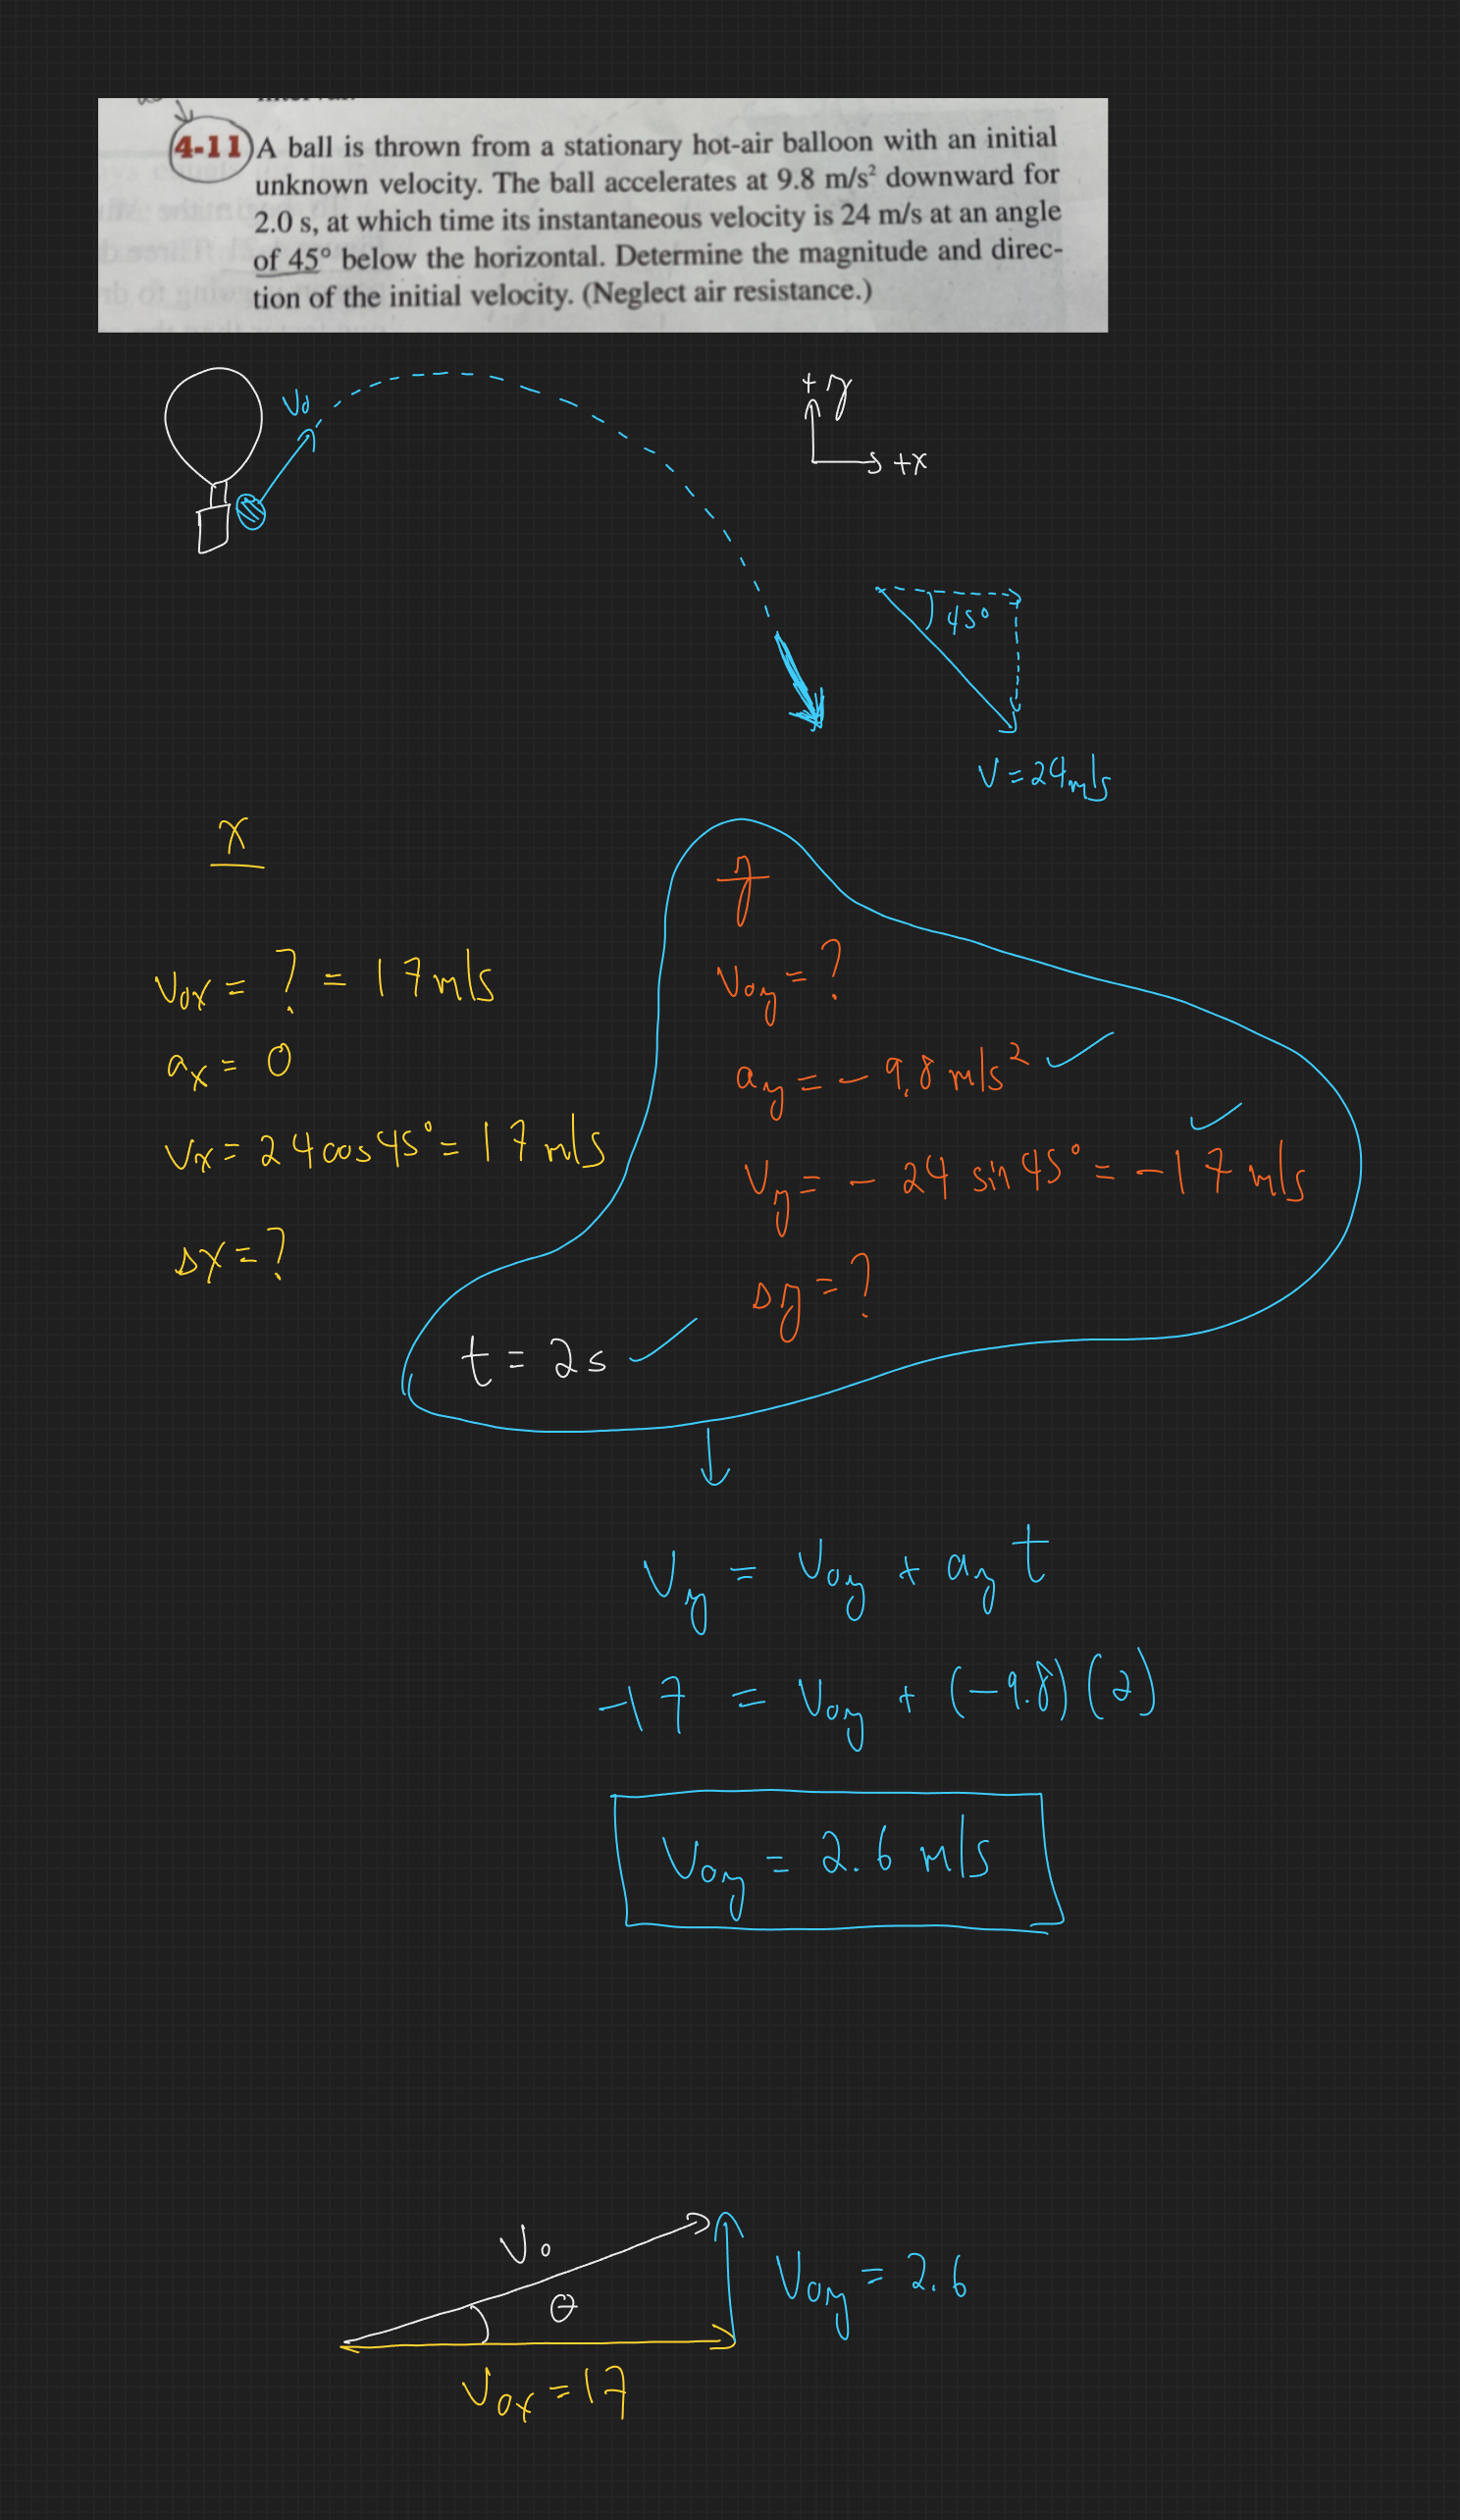 4-11 A ball is thrown from a stationary hot-air balloon with an initial
unknown velocity. The ball accelerates at 9.8 m/s² downward for
2.0 s, at which time its instantaneous velocity is 24 m/s at an angle
of 45° below the horizontal. Determine the magnitude and direc-
tion of the initial velocity. (Neglect air resistance.)
V₀
+y
+x
45°
V = 24 m/s
x
V₀ₓ = ? = 17 m/s
aₓ = 0
Vₓ = 24 cos 45° = 17 m/s
Δx = ?
y
V₀y = ?
ay = - 9.8 m/s² ✓
Vy = - 24 sin 45° = -17 m/s ✓
Δy = ?
t = 2s ✓
Vy = V₀y + ay t
-17 = V₀y + (-9.8)(2)
V₀y = 2.6 m/s
V₀
θ
V₀y = 2.6
V₀ₓ = 17